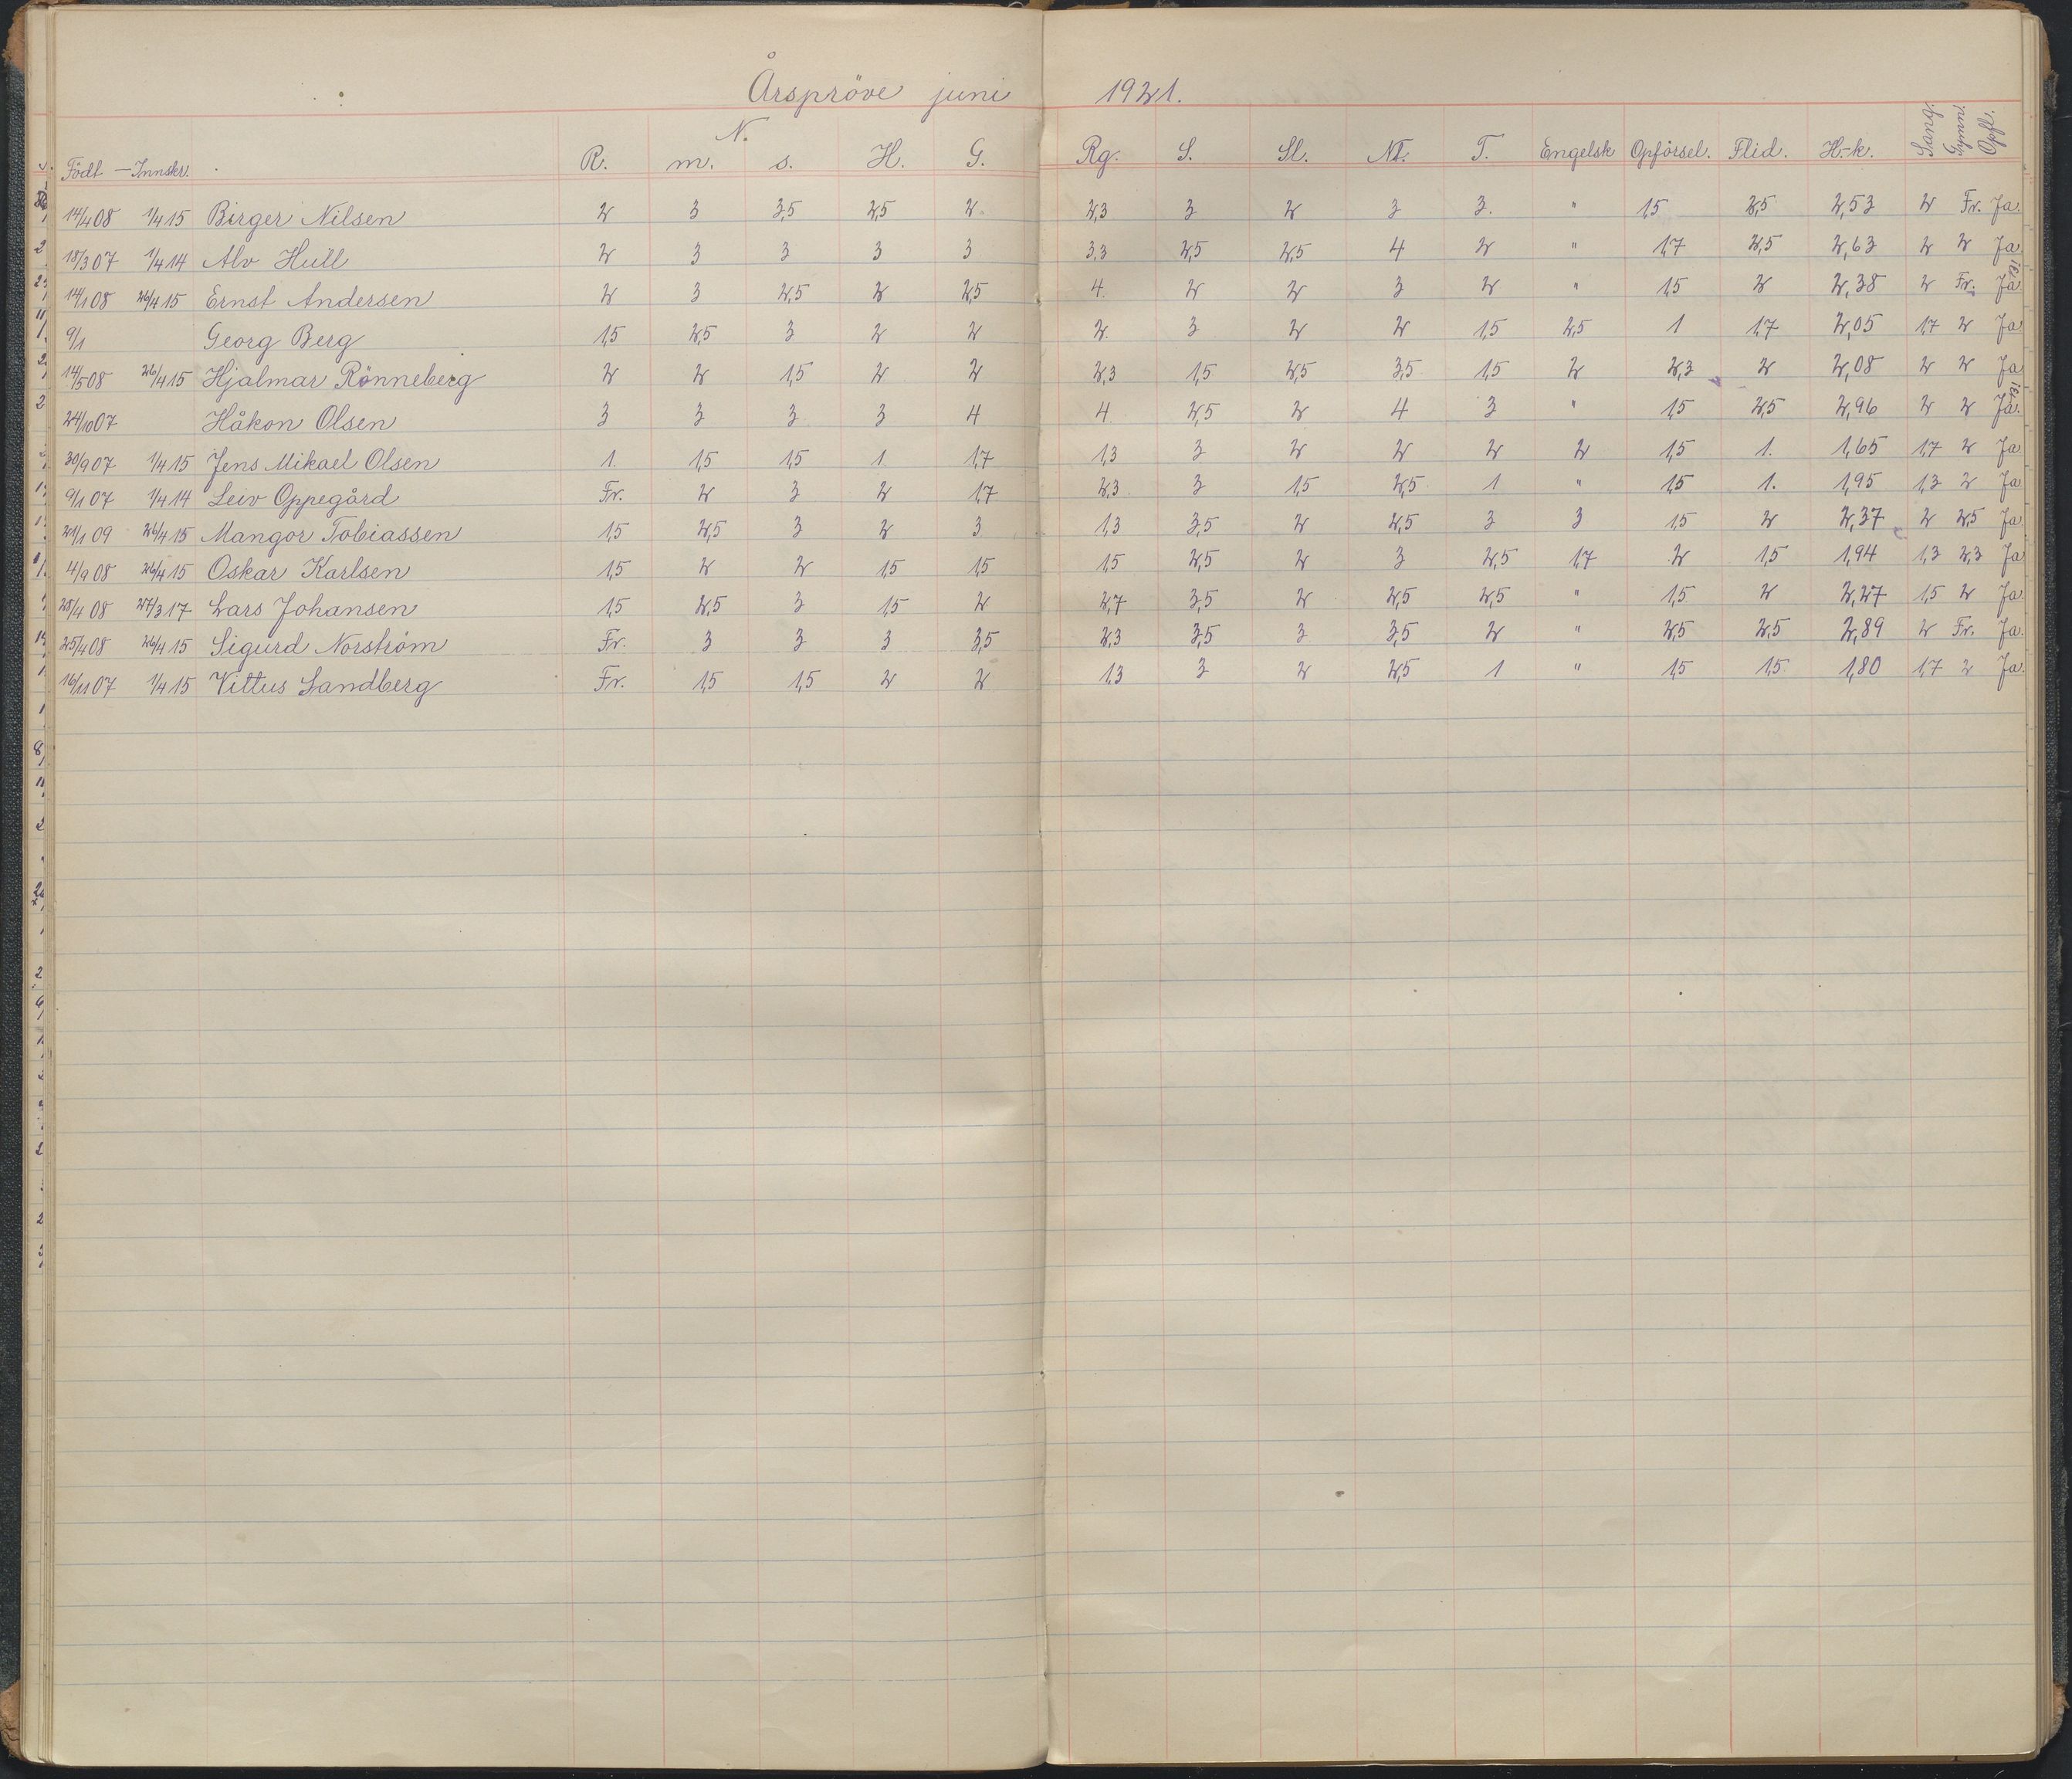 Årspröve juni 1921.
N.
Födt — Innskr. R. m. s. H. G. Rg. S. Sl. Nt. T. Engelsk Opförsel. Flid. H.-k. Sang. Gymn. Opfl.
14/4 08 1/4 15 Birger Nilsen 2 3 3,5 2,5 2. 2,3 3 2 3 3. " 1,5 2,5 2,53 2 Fr. Ja.
18/3 07 1/4 14 Alv Hüll 2 3 3 3 3 3,3 2,5 2,5 4 2 " 1,7 2,5 2,63 2 2 Ja
14/1 08 26/4 15 Ernst Andersen 2 3 2,5 2 2,5 4. 2 2 3 2 " 1,5 2 2,38 2 Fr. Ja
9/1 Georg Berg 1,5 2,5 3 2 2 2. 3 2 2 1,5 2,5 1 1,7 2,05 1,7 2 Ja
14/5 08 26/4 15 Hjalmar Rönneberg 2 2 1,5 2 2 2,3 1,5 2,5 3,5 1,5 2 2,3 2 2,08 2 2 Ja
24/10 07 Håkon Olsen 3 3 3 3 4 4. 2,5 2 4 3 " 1,5 2,5 2,96 2 2 Ja.
30/9 07 1/4 15 Jens Mikael Olsen 1. 1,5 1,5 1. 1,7 1,3 3 2 2 2 2 1,5 1. 1,65 1,7 2 Ja
9/1 07 1/4 14 Leiv Oppegård Fr. 2 3 2 1,7 2,3 3 1,5 2,5 1 " 1,5 1. 1,95 1,3 2 Ja
21/1 09 26/4 15 Mangor Tobiassen 1,5 2,5 3 2 3 1,3 3,5 2 2,5 3 3 1,5 2 2,37 2 2,5 Ja
4/9 08 26/4 15 Oskar Karlsen 1,5 2 2 1,5 1,5 1,5 2,5 2 3 2,5 1,7 2 1,5 1,94 1,3 2,3 Ja
28/4 08 27/3 17 Lars Johansen 1,5 2,5 3 1,5 2 2,7 3,5 2 2,5 2,5 " 1,5 2 2,27 1,5 2 Ja
25/4 08 26/4 15 Sigurd Norström Fr. 3 3 3 3,5 2,3 3,5 3 3,5 2 " 2,5 2,5 2,89 2 Fr. Ja.
16/11 07 1/4 15 Vittus Sandberg Fr. 1,5 1,5 2 2 1,3 3 2 2,5 1 " 1,5 1,5 1,80 1,7 2 Ja.